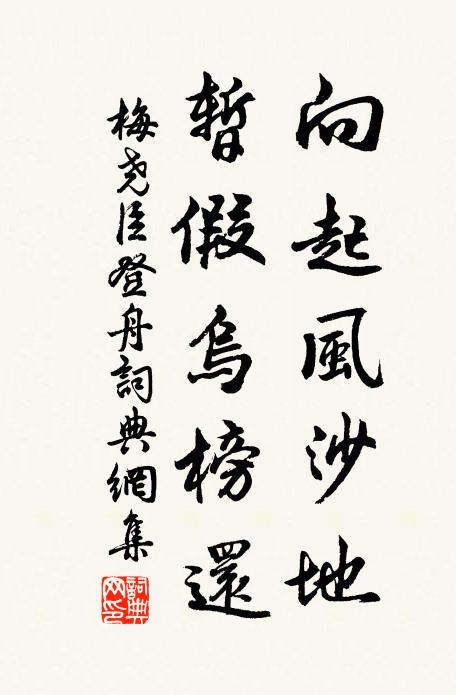 向起風沙地
暫假烏榜還
梅尧臣登舟詞典網集
詞典
网印